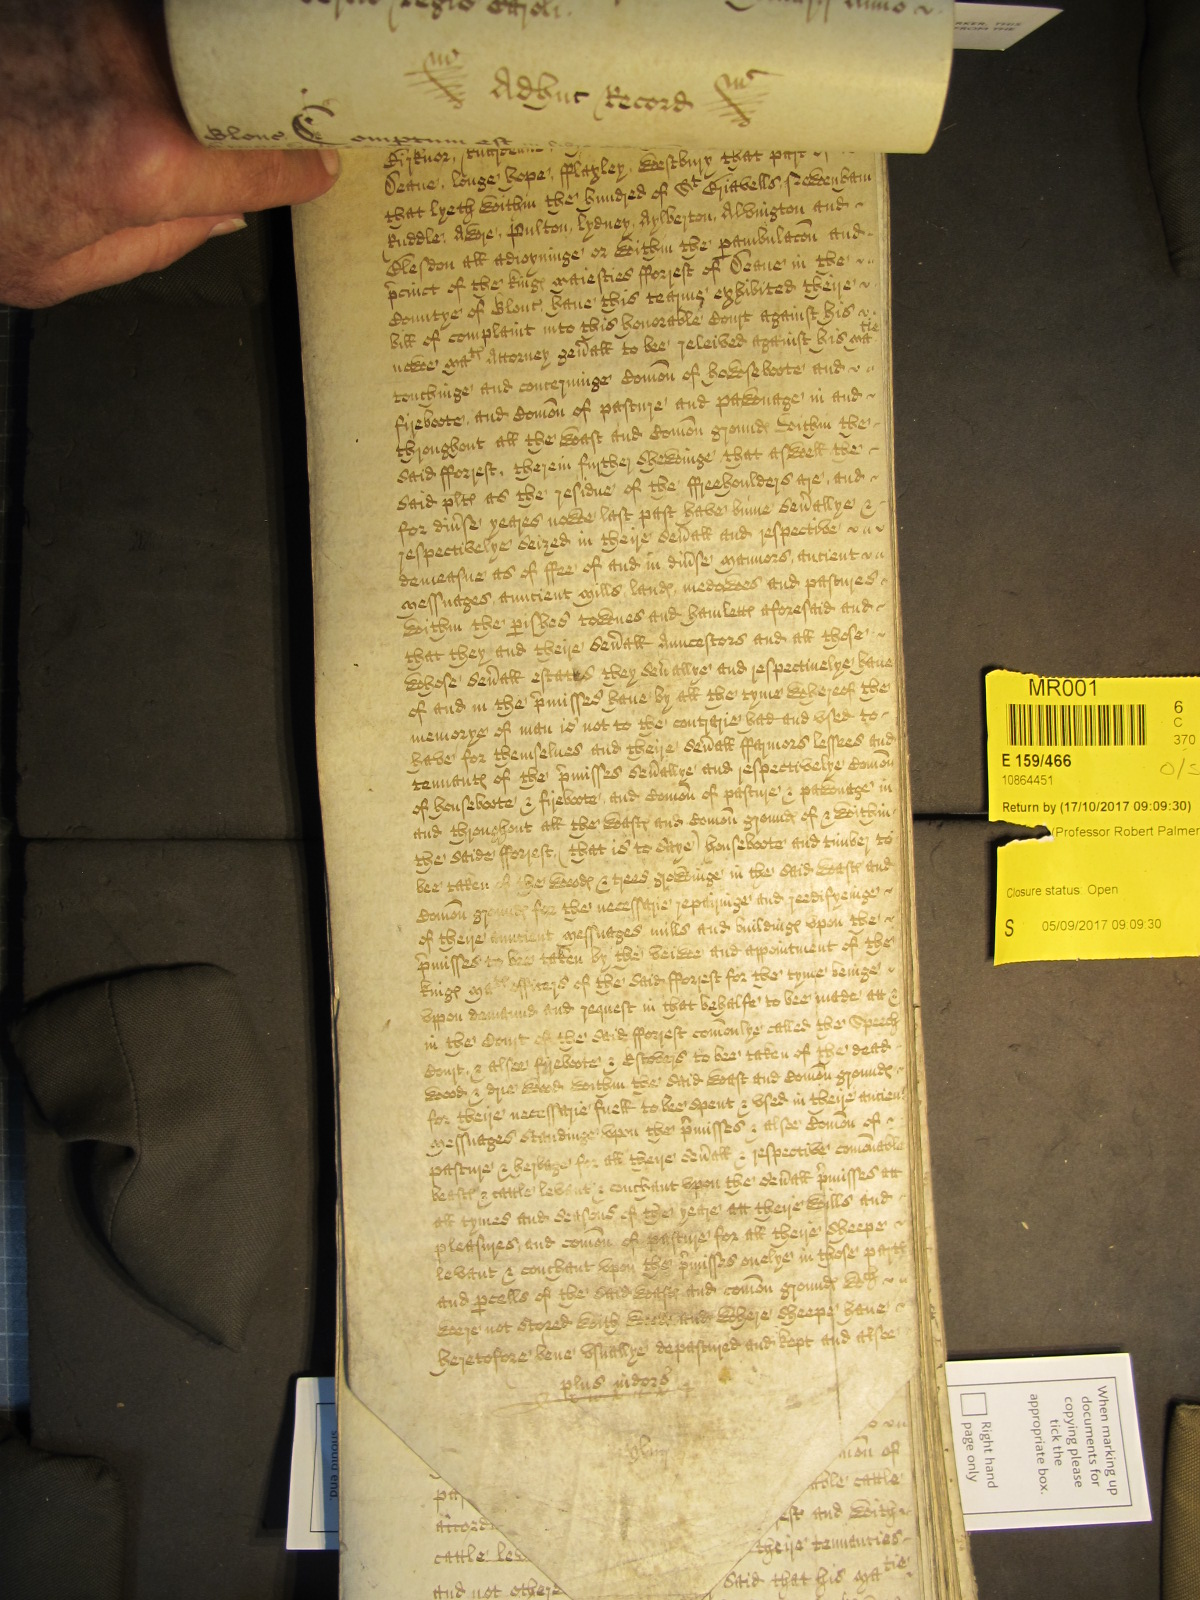 Adhuc Record
Glouc Comptum est
Deane, longe hope, fflaxley, Westbury that part
that lyeth within the hundred of St Briavells, Newenham
Ruddle, Awre, Pulton, lydney, Aylberton, Alvington and
Clesdon all adioyninge or within the pambulacon and
pcinct of the kings maiesties fforrest of Deane in the
Countye of Glouc have this tearme exhibited theire
bill of complaint into this honorable Court against his
nowe Matis Attorney genall to bee releived against his Matie
touchinge and concerninge Comon of howseboote and
fireboote, and Comon of pasture and pawnage in and
throughout all the wast and Comon grounds within the
said fforrest, therein further shewinge that aswell the
said plts as the residue of the ffreehoulders are, and
for divse yeares nowe last past have binne sevallye &
respectivelye seized in theire sevall and respective
demeasne as of ffee of and in divse mannors, ancient
messuages, auncient mills, lands, medowes and pastures
within the pishes townes and hamletts aforesaid and
that they and theire sevall Auncestors and all those
whose sevall estates they sevallye and respectivelye have
of and in the pmisses have by all the tyme whereof the
memorye of man is not to the contrarie had and used to
have for themselves and theire sevall ffarmors lessees and
tennants of the pmisses sevallye and respectivelye Comon
of houseboote & fireboote, and Comon of pasture & pawnage in
and throughout all the wasts and Comon grounds of & within
the saide fforrest, (that is to saye) houseboote and timber to
bee taken of the woods & trees growinge in the said wasts and
Comon grounds for the necessarie repairinge and reedifyeinge
of theire auncient messuages mills and buildings upon the
pmisses to bee taken by the veiwe and apointment of the
kings Matis officers of the said fforrest for the tyme beinge
uppon demaund and request in that behalfe to bee made att &
in the Court of the said fforrest comonlye called the Speech
Court, & alsoe fireboote & Estovers to bee taken of the dead
wood & drie wood within the said wast and Comon grounds
for theire necessarie fuell to bee spent & used in theire ancient
messuages standinge upon the pmisses & alsoe Comon of
pasture & herbage for all theire sevall & respective comonable
beasts & cattle levant & couchant upon the sevall pmisses att
all tymes and seasons of the yeare att theire wills and
pleasures, and comon of pasture for all theire sheepe
levant & couchant upon the pmisses onelye in those parts
and pcells of the said wasts and comon grounds wch
were not stored with woods and where sheepe have
heretofore bene usuallye depastured and kept and alsoe
plus indors
mon of
able cattle
accord
est and with
cattle lev
theire tennancies
and not othere
said that his Matie
MR001
6
C
370
E 159/466
10864451
Return by (17/10/2017 09:09:30)
(Professor Robert Palmer
Closure status: Open
S
05/09/2017 09:09:30
When marking up
documents for
copying please
tick the
appropriate box.
Right hand
page only
should end.